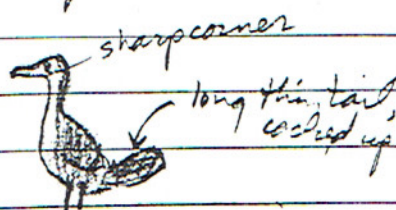 sharp corner
long thin tail,
cocked up